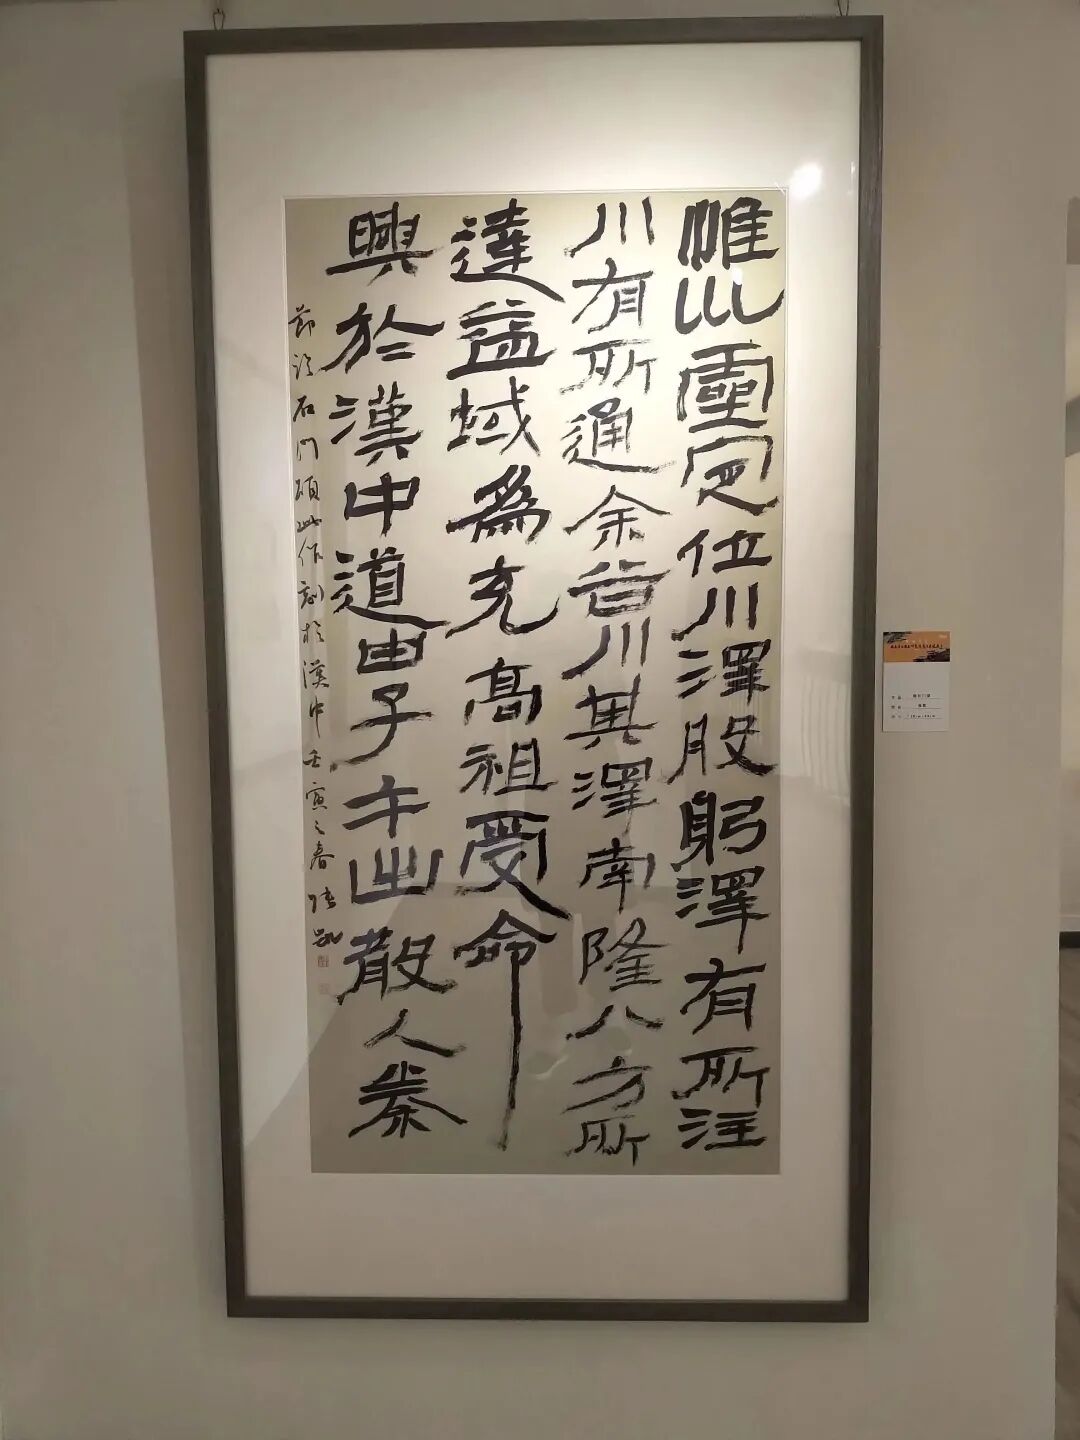 惟巛靈定位川澤股躬澤有所注
川有所通余谷川其澤南隆八方所
達益域為充高祖受命
興於漢中道由子午出散入秦
節臨石門頌此作刻於漢中壬寅之春